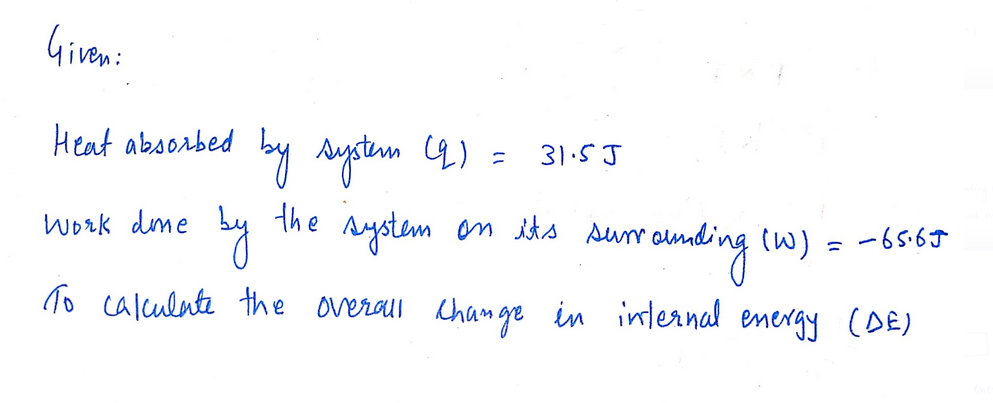 Given:
Heat absorbed by system (q) = 31.5 J
Work done by the system on its surrounding (W) = -65.6J
To calculate the overall change in internal energy (ΔE)